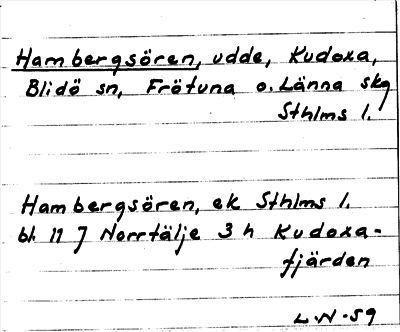 Hambergsören, udde, Kudoxa,
Blidö sn, Frötuna o. Länna skg
Sthlms l.
Hambergsören, ek Sthlms l.
bl. 11 J Norrtälje 3 h Kudoxa-
fjärden
L.N.59